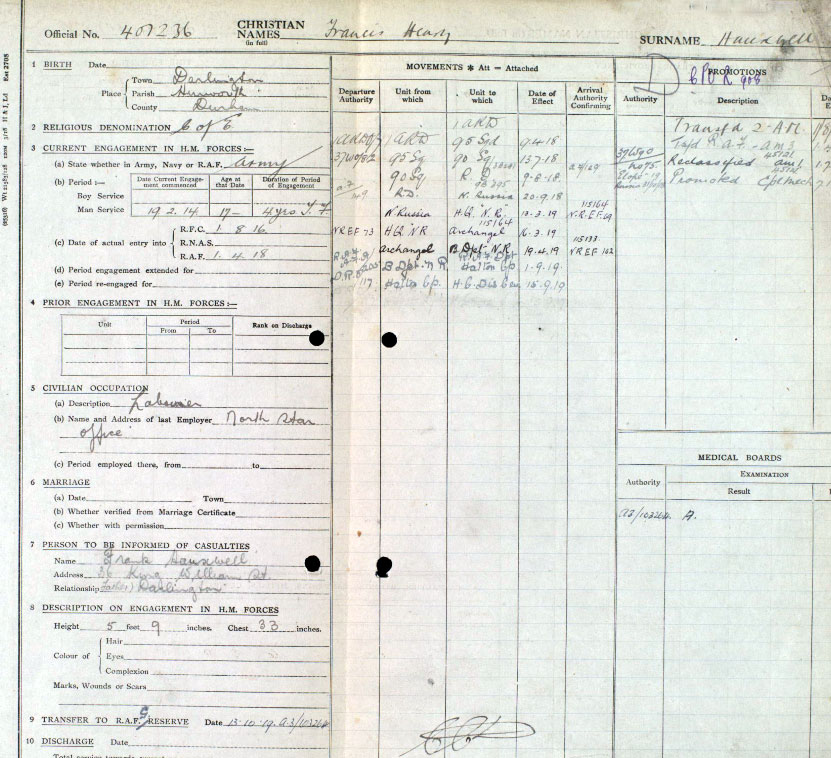 Official No. 407236 CHRISTIAN NAMES (in full) Francis Henry SURNAME Hauxwell
1 BIRTH Date
Place Town Darlington
Parish Hurworth
County Durham
2 RELIGIOUS DENOMINATION C of E.
3 CURRENT ENGAGEMENT IN H.M. FORCES:—
(a) State whether in Army, Navy or R.A.F. Army
(b) Period:— Date Current Engagement commenced Age at that Date Duration of Period of Engagement
Boy Service
Man Service 19.2.14 17 4 yrs T.F.
(c) Date of actual entry into R.F.C. 1 8 16
R.N.A.S.
R.A.F. 1.4.18
(d) Period engagement extended for
(e) Period re-engaged for
4 PRIOR ENGAGEMENT IN H.M. FORCES:—
Unit Period From To Rank on Discharge
5 CIVILIAN OCCUPATION
(a) Description Labourer
(b) Name and Address of last Employer North Star
office
(c) Period employed there, from to
6 MARRIAGE
(a) Date Town
(b) Whether verified from Marriage Certificate
(c) Whether with permission
7 PERSON TO BE INFORMED OF CASUALTIES
Name Frank Hauxwell
Address 36 King William St.
Relationship (Father) Darlington
8 DESCRIPTION ON ENGAGEMENT IN H.M. FORCES
Height 5 feet 9 inches. Chest 33 inches.
Colour of Hair
Eyes
Complexion
Marks, Wounds or Scars
9 TRANSFER TO R.A.F. RESERVE Date 13.10.19. A3/103264
10 DISCHARGE Date
MOVEMENTS * Att = Attached
Departure Authority Unit from which Unit to which Date of Effect Arrival Authority Confirming
1 ARD
1 ARD 95 Sqd 9.4.18
95 Sq 90 Sq
90 Sq R.D. 9.8.18
R.D. N. Russia 20.9.18 115164
N Russia H.Q. N.R. N.R.E.F. 69
115164
NREF 73 H.Q NR Archangel 115133
Archangel B Dpt. N.R. 19.4.19 NREF 102
B Dpt. N R. Halton Cp. 1.9.19.
117. Halton Cp. H.C. Dis Cen 15.9.19
D
PROMOTIONS
Authority Description
Transfd 2 AM.
Tsfd R.A.F. - AM 3
Reclassified
Promoted Cpl Mech
MEDICAL BOARDS
Authority EXAMINATION
Result
A3/103264 A.